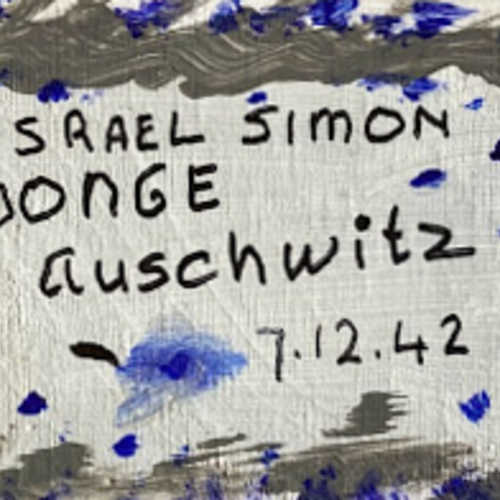 SRAEL SIMON
JONGE
auschwitz
7.12.42